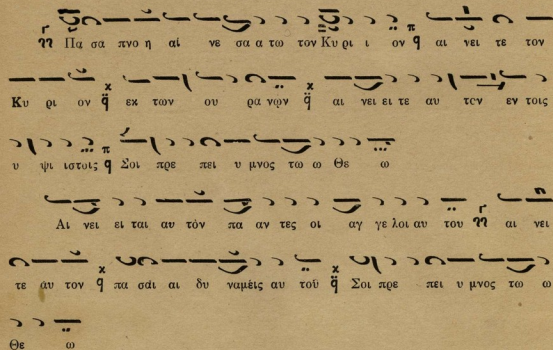 Πα σα πνο η αί νε σα α τω τον Κυ ρι ι ον q̈ αι νει τε τον
Κυ ρι ον q̈ εκ των ου ρα νων q̈ αι νει ει τε αυ τον εν τοις
υ ψι ιστοις q̈ Σοι πρε πει υ μνος τω ω Θε ω
Αι νει ει ται αυ τόν πα αν τες οι αγ γε λοι αυ του αι νει
τε αυ τον q̈ πα σαι αι δυ ναμεις αυ τοῦ q̈ Σοι πρε πει υ μνος τω ω
Θε ω